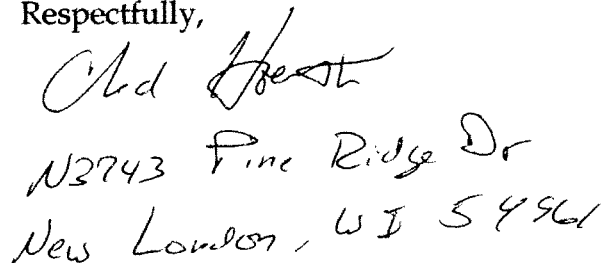 Respectfully,
Chad
N3743 Pine Ridge Dr
New London, WI 54961